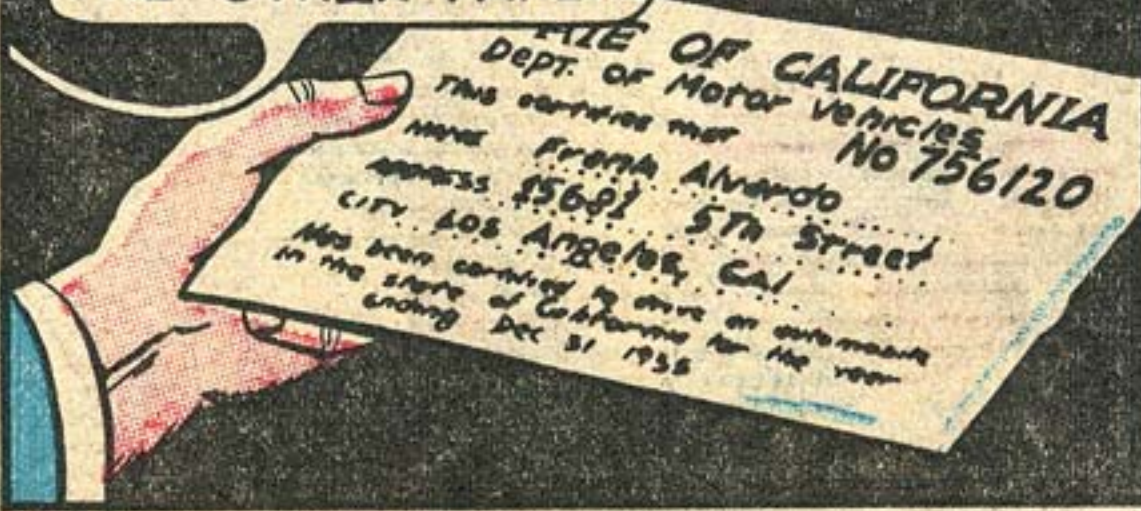 OF CALIFORNIA
Dept. of Motor Vehicles
No 756120
This certifies that
NAME Frank Alvardo
ADDRESS 15681 5Th Street
CITY Los Angeles, Cal
Has been certified to drive an automobile
in the state of California for the year
ending Dec 31 1938